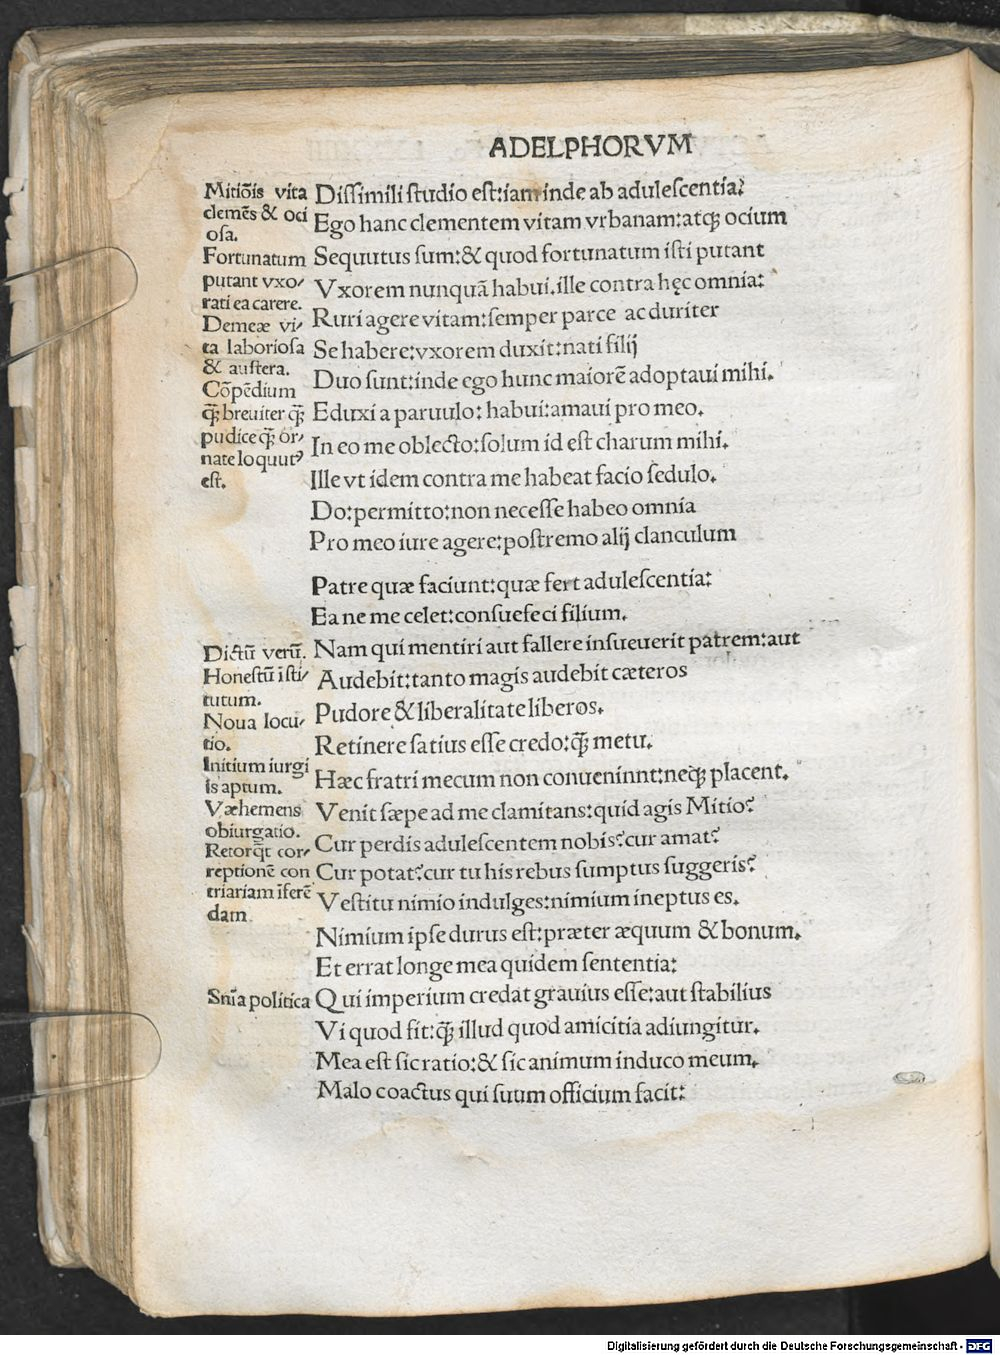 ADELPHORVM
Mitiõis vita
clemẽs & oci
osa.
Fortunatum
putant vxo/
rati ea carere.
Demeæ vi/
ta laboriosa
& austera.
Cõpẽdium
ꝙ̃ breuiter ꝙ̃
pudice ꝙ̃ or/
nate loquut᾽
est.
Dissimili studio est:iam inde ab adulescentia:
Ego hanc clementem vitam vrbanam:atqꝫ ocium
Sequutus sum:& quod fortunatum isti putant
Vxorem nunquã habui.ille contra hęc omnia:
Ruri agere vitam:semper parce ac duriter
Se habere:vxorem duxit:nati filij
Duo sunt:inde ego hunc maiorẽ adoptaui mihi.
Eduxi a paruulo: habui:amaui pro meo.
In eo me oblecto:solum id est charum mihi.
Ille vt idem contra me habeat facio sedulo.
Do:permitto:non necesse habeo omnia
Pro meo iure agere:postremo alij clanculum
Patre quæ faciunt:quæ fert adulescentia:
Ea ne me celet:consuefeci filium.
Dictũ verũ.
Honestũ isti/
tutum.
Noua locu/
tio.
Initium iurgi
is aptum.
Væhemens
obiurgatio.
Retorq̃t cor/
reptionẽ con
triariam ĩferẽ
dam
Nam qui mentiri aut fallere insueuerit patrem:aut
Audebit:tanto magis audebit cæteros
Pudore & liberalitate liberos.
Retinere satius esse credo:ꝙ̃ metu.
Hæc fratri mecum non conueninnt:neqꝫ placent.
Venit sæpe ad me clamitans:quid agis Mitio?
Cur perdis adulescentem nobis?cur amat?
Cur potat?cur tu his rebus sumptus suggeris?
Vestitu nimio indulges:nimium ineptus es.
Nimium ipse durus est:præter æquum & bonum.
Et errat longe mea quidem sententia:
Sñia politica
Qui imperium credat grauius esse:aut stabilius
Vi quod fit:ꝙ̃ illud quod amicitia adiungitur.
Mea est sic ratio:& sic animum induco meum.
Malo coactus qui suum officium facit:
Digitalisierung gefördert durch die Deutsche Forschungsgemeinschaft - DFG